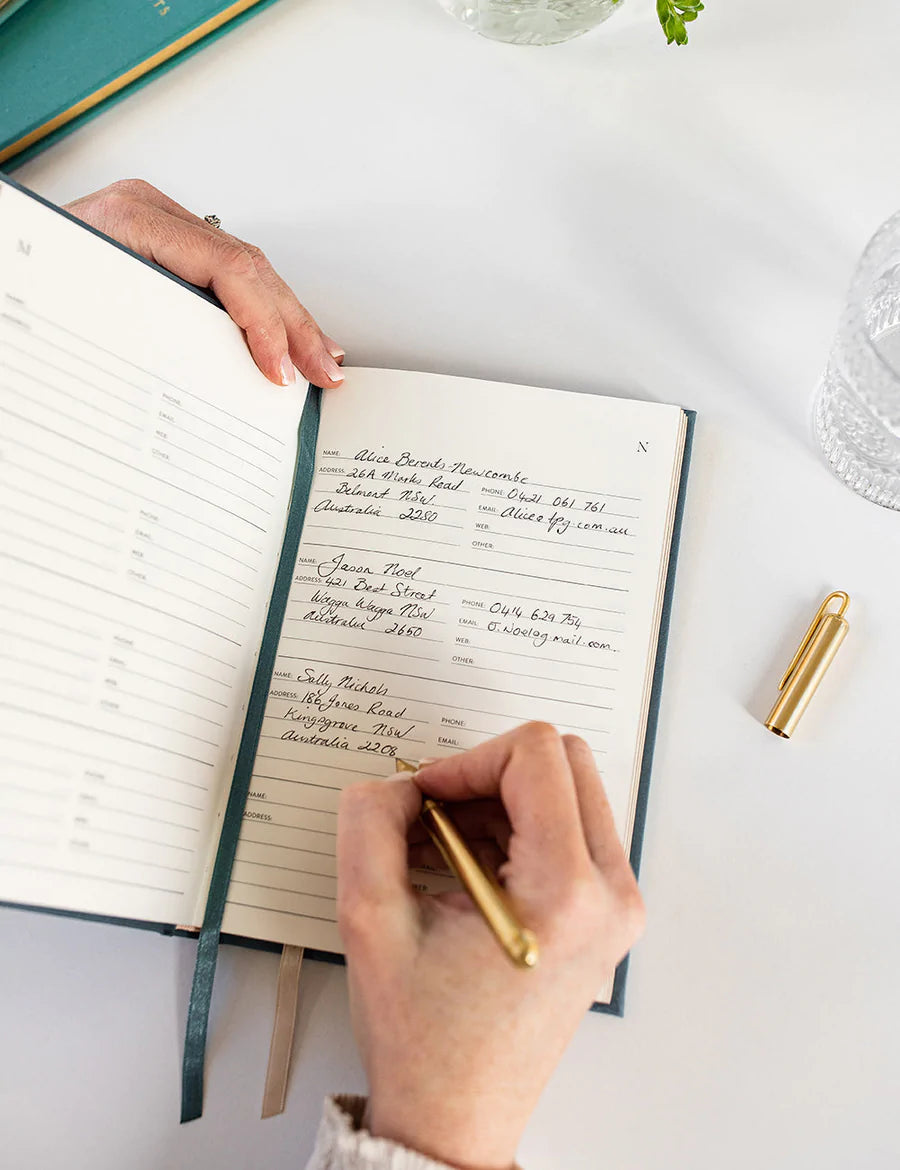 TS
M
PHONE:
EMAIL:
WEB:
OTHER:
PHONE:
EMAIL:
WEB:
OTHER:
N
NAME: Alice Berents-Newcombe
ADDRESS: 26A Marks Road
Belmont NSW
Australia 2280
PHONE: 0421 061 761
EMAIL: Alice@tpg.com.au
WEB:
OTHER:
NAME: Jason Noel
ADDRESS: 421 Best Street
Wagga Wagga NSW
Australia 2650
PHONE: 0414 629 754
EMAIL: J.Noel@gmail.com
WEB:
OTHER:
NAME: Sally Nichols
ADDRESS: 186 Jones Road
Kingsgrove NSW
Australia 2208
PHONE:
EMAIL:
NAME:
ADDRESS: